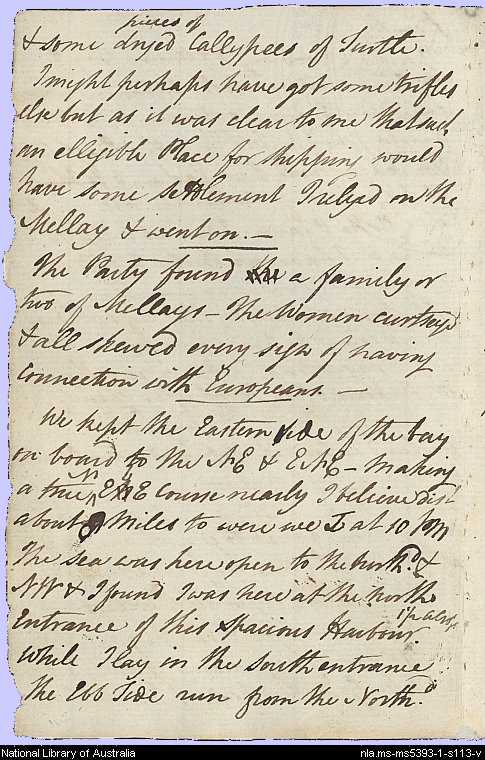 pieces of
& some dryed Callypees of Turtle.
I might perhaps have got some trifles
else but as it was clear to me that such
an elligible Place for shipping would
have some settlement I relyed on the
Mellay & went on. —
The Party found the a family or
two of Mellays — The Women curtsey'd
& all shewed every sign of having
Connection with Europeans. —
We kept the Eastern side of the bay
on board to the NE & ENE — making
a true N E course nearly I believe dist
about 8 Miles to were we I at 10 PM
The sea was here open to the northd &
NW & I found I was here at the north
Entrance of this Spacious Harbour
while I lay in the south entrance
The Ebb Tide run from the Northd
National Library of Australia
nla.ms-ms5393-1-s113-v